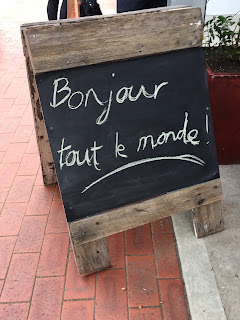 Bonjour
tout le monde!